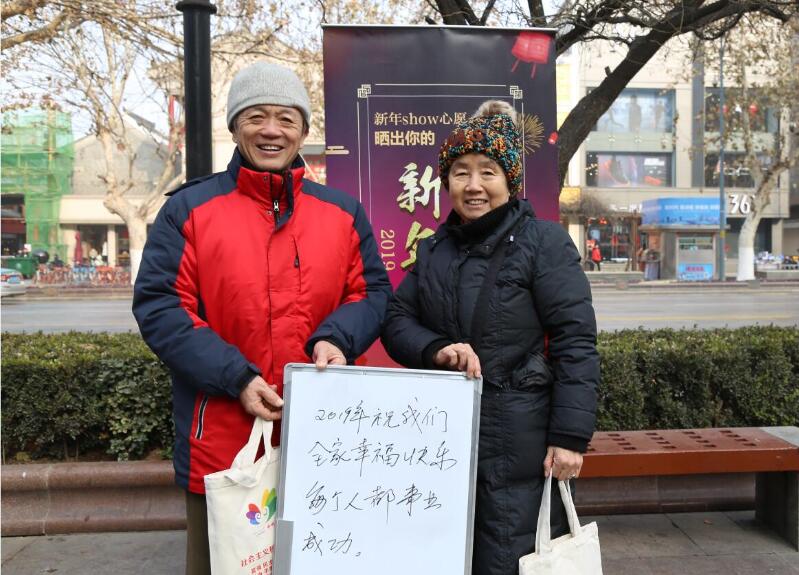 新年show心愿
晒出你的
新
年
2019
2019年祝我们
全家幸福快乐
每个人都事业
成功。
社会主义
36